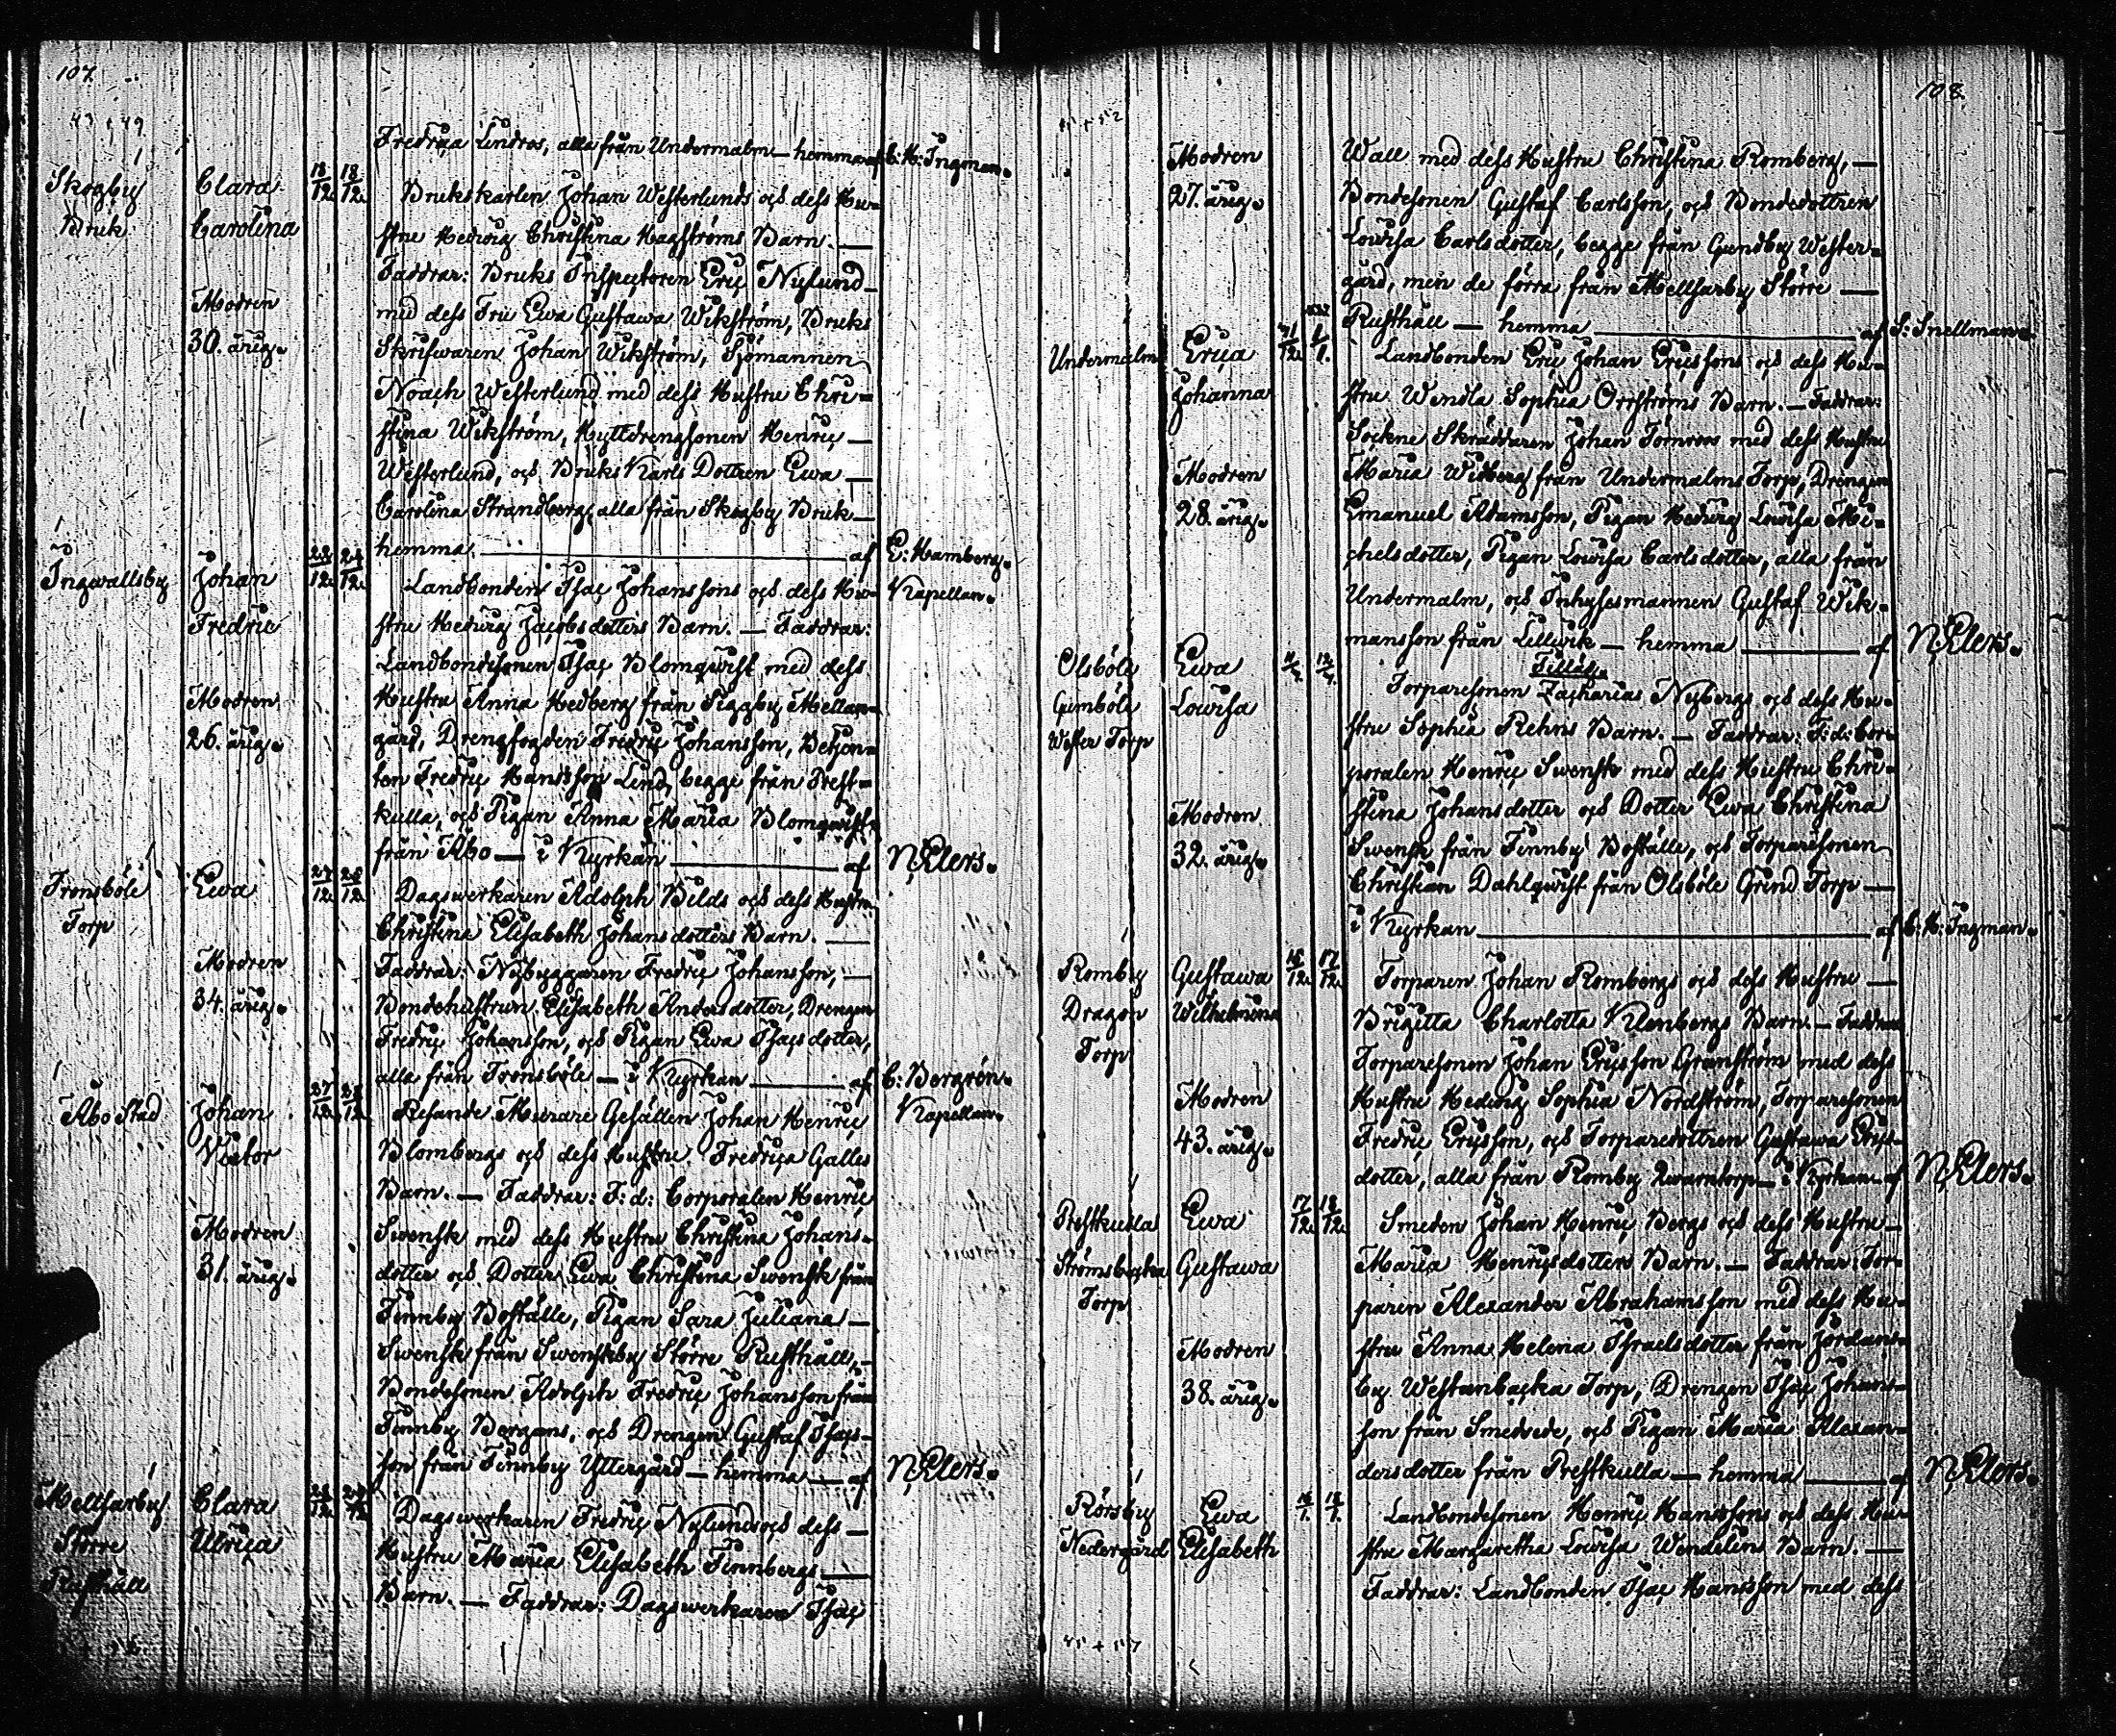 107.
43 + 49
Fredrica Lindros, alla från Undermalm — hemma af C: H: Ingman.
Skogby Clara 18/12. 18/12. Brukskarlen Johan Westerlunds och dess Hu-
Bruk Carolina stru Hedwig Christina Hagströms Barn. —
Faddrar: Bruks Inspectoren Eric Nylund
Modren med dess Fru Ewa Gustawa Wikström, Bruks
30. årig. Skrifwaren Johan Wikström, Sjömannen
Noach Westerlund med dess Hustru Chri-
stina Wikström, Hyttdrengsonen Henric —
Westerlund, och Bruks Karls Dottren Ewa —
Carolina Strandberg, alla från Skogby Bruk —
hemma. — af E: Hamberg.
Ingwallsby Johan Landbonden Isac Johanssons och dess Hu- Kapellan.
Fredric stru Hedwig Jacobsdotters Barn. — Faddrar:
Landbondesonen Isac Blomqwist med dess
Modren Hustru Anna Hedberg från Siggby Mellan-
26. årig. gård, Drengfogden Fredric Johansson, Betjen-
ten Fredric Hansson Lind, begge från Prest-
kulla, och Pigan Anna Maria Blomqwist
från Åbo — i Kyrkan — af N, Elers.
Tronsböle Ewa 27/12. 28/12. Dagswerkaren Adolph Bilds och dess Hustru
Torp Christina Elisabeth Johansdotters Barn. —
Modren Faddrar: Nybyggaren Fredric Johansson, —
34. årig. Bondehustrun Elisabeth Andersdotter, Drengen
Fredric Johansson, och Pigan Ewa Isacsdotter,
alla från Tronsböle — i Kyrkan — af C: Bergrén.
Åbo Stad Johan 27/12. 28/12. Resande Murare Gesällen Johan Henric Kapellan.
Victor Blombergs och dess Hustru Fredrica Galles
Barn. — Faddrar: F: d: Corporalen Henric
Modren Swensk med dess Hustru Christina Johans-
31. årig. dotter och Dotter Ewa Christina Swensk från
Finnby Boställe, Pigan Sara Juliana —
Swensk från Swenskby Större Rusthåll, —
Bondesonen Adolph Fredric Johansson från
Finnby Bergans, och Drengen Gustaf Isacs-
son från Finnby Yttergård — hemma — af N, Elers.
Mellsarby Clara Dagswerkaren Fredric Nylunds och dess —
Större Ulrica Hustru Maria Elisabeth Finnbergs —
Rusthåll Barn. — Faddrar: Dagswerkaren Isac
108.
Modren Wall med dess Hustru Christina Romberg, —
27. årig. Bondesonen Gustaf Carlsson, och Bondedottren
Lowisa Carlsdotter, begge från Gundby Wester-
gård, men de förra från Mellsarby Större —
Rusthåll — hemma — af S: Snellman.
Undermalm Erica 31/12. 1/1. Landbonden Eric Johan Ericssons och dess Hu-
Johanna stru Wendla Sophia Orrströms Barn. — Faddrar:
Sockne Skräddaren Johan Törnroos med dess Hustru
Modren Maria Widberg från Undermalms Torp, Drengen
28. årig. Emanuel Adamsson, Pigan Hedwig Lowisa Mi-
chelsdotter, Pigan Lowisa Carlsdotter, alla från
Undermalm, och Inhysesmannen Gustaf Wik-
mansson från Lillwik — hemma — af N, Elers.
Tillägg.
Olsböle Ewa Torparesonen Zacharias Nybergs och dess Hu-
Gumböle Lowisa stru Sophia Rehns Barn. — Faddrar: F: d: Cor-
Wester Torp poralen Henric Swensk med dess Hustru Chri-
stina Johansdotter och Dotter Ewa Christina
Modren Swensk från Finnby Boställe, och Torparesonen
32. årig. Christian Dahlqwist från Olsböle Grind Torp —
i Kyrkan — af C: H: Ingman.
Romby Gustawa 16/12. 17/12. Torparen Johan Rombergs och dess Hustru —
Dragon Wilhelmina Brigitta Charlotta Klenbergs Barn. — Faddrar
Torp Torparesonen Johan Ericsson Granström med dess
Modren Hustru Hedwig Sophia Nordström, Torparesonen
43. årig. Fredric Ericsson, och Torparedottren Gustawa Erics-
dotter, alla från Romby Qwarntorp — i Kyrkan af N, Elers.
Prestkulla Ewa 17/12. 18/12. Smeden Johan Henric Bergs och dess Hustru —
Strömsbacka Gustawa Maria Henricsdotters Barn. — Faddrar: Tor-
Torp paren Alexander Abrahamsson med dess Hu-
Modren stru Anna Helena Israelsdotter från Jordans-
38. årig. by Westanbacka Torp, Drengen Isac Johans-
son från Smedsede, och Pigan Maria Alexan-
dersdotter från Prestkulla — hemma — af N, Elers.
Rörsby Ewa 16/1. 18/1. Landbondesonen Henric Hanssons och dess Hu-
Nedergård Elisabeth stru Margaretha Lowisa Wendelin Barn. —
Faddrar: Landbonden Isac Hansson med dess